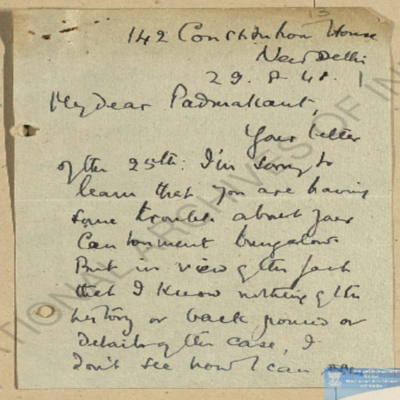 13
142 Constitution House
New Delhi
29. 8. 48.
My dear Padmakant,
Your letter
of the 25th: I'm sorry to
learn that you are having
some trouble about your
Cantonment bungalow
But in view of the fact
that I know nothing of the
history or back ground or
details of the case, I
don't see how I can